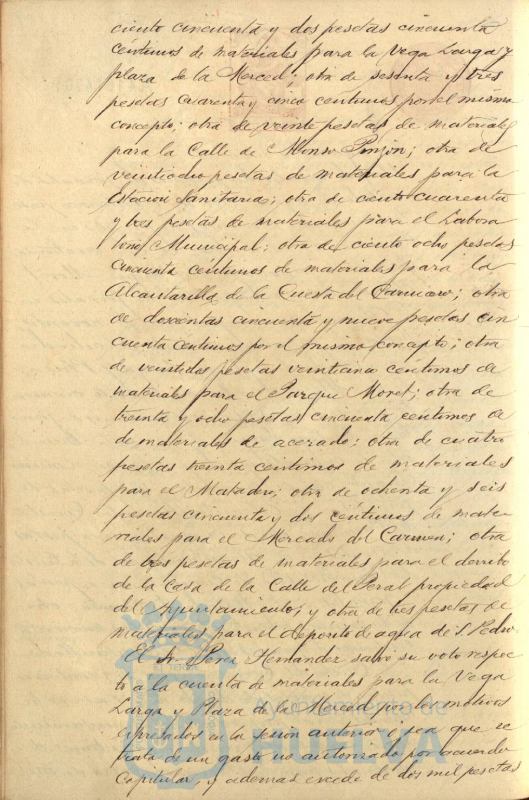 ciento cincuenta y dos pesetas cincuenta
céntimos de materiales para la Vega Larga y
plaza de la Merced; otra de sesenta y tres
pesetas cuarenta y cinco céntimos por el mismo
concepto; otra de veinte pesetas de materiales
para la Calle de Alonso Pinzón; otra de
veintiocho pesetas de materiales para la
Estación Sanitaria; otra de ciento cuarenta
y tres pesetas de materiales para el Labora
torio Municipal; otra de ciento ocho pesetas
cincuenta céntimos de materiales para la
Alcantarilla de la Cuesta del Carnicero; otra
de doscientas cincuenta y nueve pesetas cin
cuenta céntimos por el mismo concepto; otra
de veintidos pesetas veinticinco céntimos de
materiales para el Parque Moret; otra de
treinta y ocho pesetas cincuenta céntimos de
de materiales de acerado; otra de cuatro
pesetas treinta céntimos de materiales
para el Matadero; otra de ochenta y seis
pesetas cincuenta y dos céntimos de mate-
riales para el Mercado del Carmen; otra
de tres pesetas de materiales para el derribo
de la Casa de la Calle del Peral propiedad
del Ayuntamiento, y otra de tres pesetas de
materiales para el depósito de agua de S. Pedro.
El Sr. Perez Hernandez salvó su voto respec
to a la cuenta de materiales para la Vega
Larga y Plaza de la Merced por los motivos
expresados en la sesión anterior o sea que se
trata de un gasto no autorizado por acuerdo
Capitular, y ademas excede de dos mil pesetas
Ayuntamiento de
HUELVA